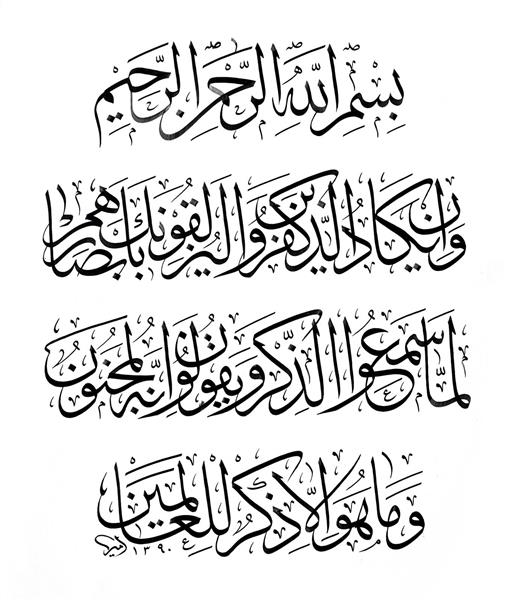 بِسْمِ اللَّهِ الرَّحْمَنِ الرَّحِيمِ
وَإِنْ يَكَادُ الَّذِينَ كَفَرُوا لَيُزْلِقُونَكَ بِأَبْصَارِهِمْ
لَمَّا سَمِعُوا الذِّكْرَ وَيَقُولُونَ إِنَّهُ لَمَجْنُونٌ
وَمَا هُوَ إِلَّا ذِكْرٌ لِلْعَالَمِينَ
١٣٩٠